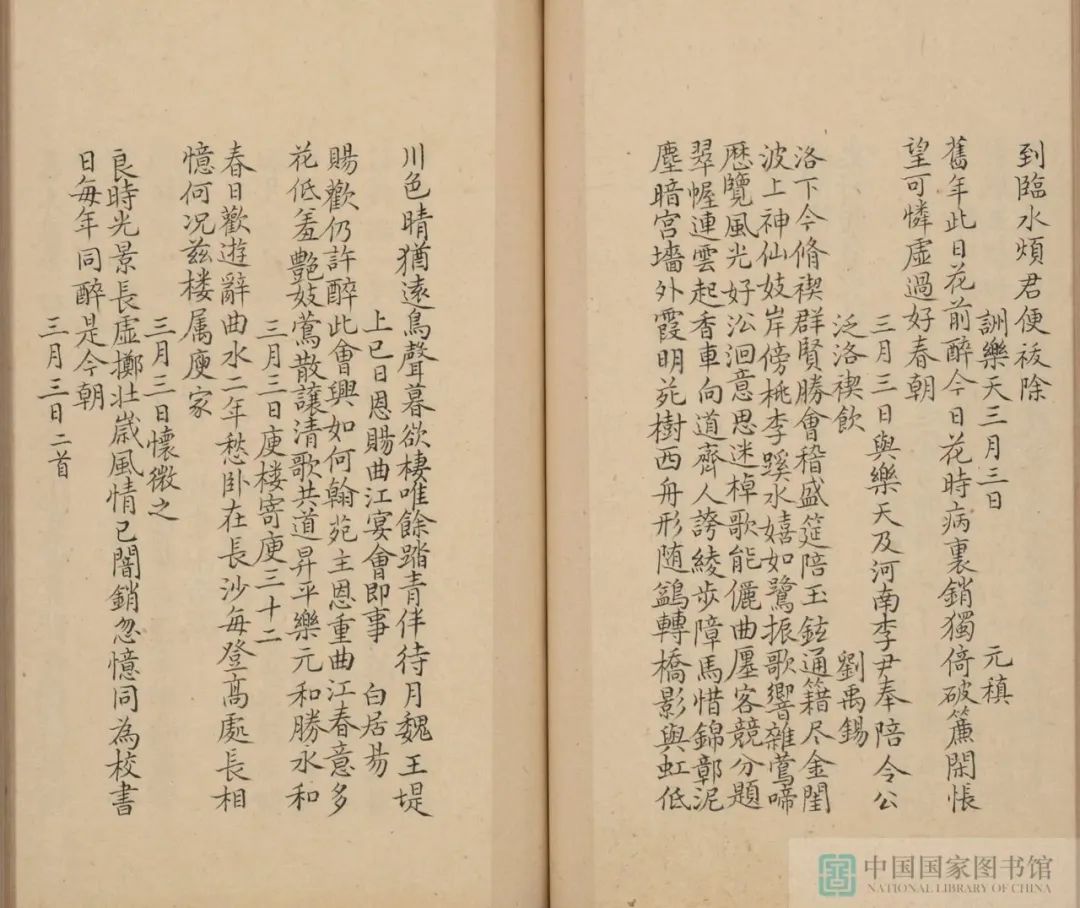 到臨水煩君便祓除
詶樂天三月三日　元稹
舊年此日花前醉今日花時病裏銷獨倚破簾閑悵
望可憐虛過好春朝
三月三日與樂天及河南李尹奉陪令公
泛洛禊飲　劉禹錫
洛下今脩禊群賢勝會稽盛筵陪玉鉉通籍尽金閨
波上神仙妓岸傍桃李蹊水嬉如鷺振歌響雜鶯啼
歷覽風光好㳂洄意思迷棹歌能儷曲墨客競分題
翠幄連雲起香車向道齊人誇綾步障馬惜錦鄣泥
塵暗宮墻外霞明苑樹西舟形随鷁轉橋影與虹低
川色晴猶遠鳥聲暮欲棲唯餘踏青伴待月魏王堤
上巳日恩賜曲江宴會即事　白居昜
賜歡仍許醉此會興如何翰苑主恩重曲江春意多
花低羞艷妓鶯散讓清歌共道昇平樂元和勝永和
三月三日庾楼寄庾三十二
春日歡遊辭曲水二年愁卧在長沙每登髙處長相
憶何况兹楼属庾家
三月三日懷微之
良時光景長虛擲壮歲風情已闇銷忽憶同為校書
日每年同醉是今朝
三月三日二首
中国国家图书馆
NATIONAL LIBRARY OF CHINA